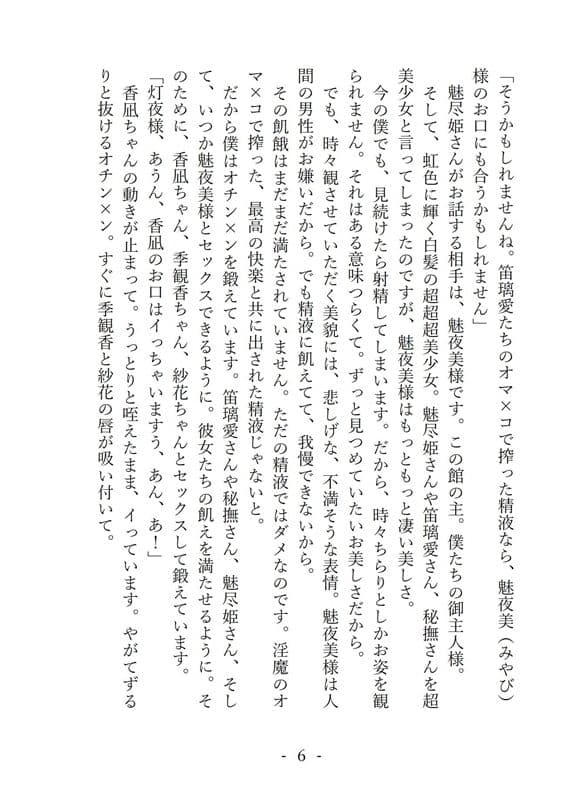 「そうかもしれませんね。笛璃愛たちのオマ×コで搾った精液なら、魅夜美（みやび）
様のお口にも合うかもしれません」
魅尽姫さんがお話する相手は、魅夜美様です。この館の主。僕たちの御主人様。
そして、虹色に輝く白髪の超超超美少女。魅尽姫さんや笛璃愛さん、秘撫さんを超
美少女と言ってしまったのですが、魅夜美様はもっともっと凄い美しさ。
今の僕でも、見続けたら射精してしまいます。だから、時々ちらりとしかお姿を観
られません。それはある意味つらくて。ずっと見つめていたいお美しさだから。
でも、時々観させていただく美貌には、悲しげな、不満そうな表情。魅夜美様は人
間の男性がお嫌いだから。でも精液に飢えてて、我慢できないから。
その飢餓はまだまだ満たされていません。ただの精液ではダメなのです。淫魔のオ
マ×コで搾った、最高の快楽と共に出された精液じゃないと。
だから僕はオチン×ンを鍛えています。笛璃愛さんや秘撫さん、魅尽姫さん、そし
て、いつか魅夜美様とセックスできるように。彼女たちの飢えを満たせるように。そ
のために、香凪ちゃん、季観香ちゃん、紗花ちゃんとセックスして鍛えています。
「灯夜様、あうん、香凪のお口はイっちゃいますう、あん、あ！」
香凪ちゃんの動きが止まって。うっとりと咥えたまま、イっています。やがてずる
りと抜けるオチン×ン。すぐに季観香と紗花の唇が吸い付いて。
- 6 -